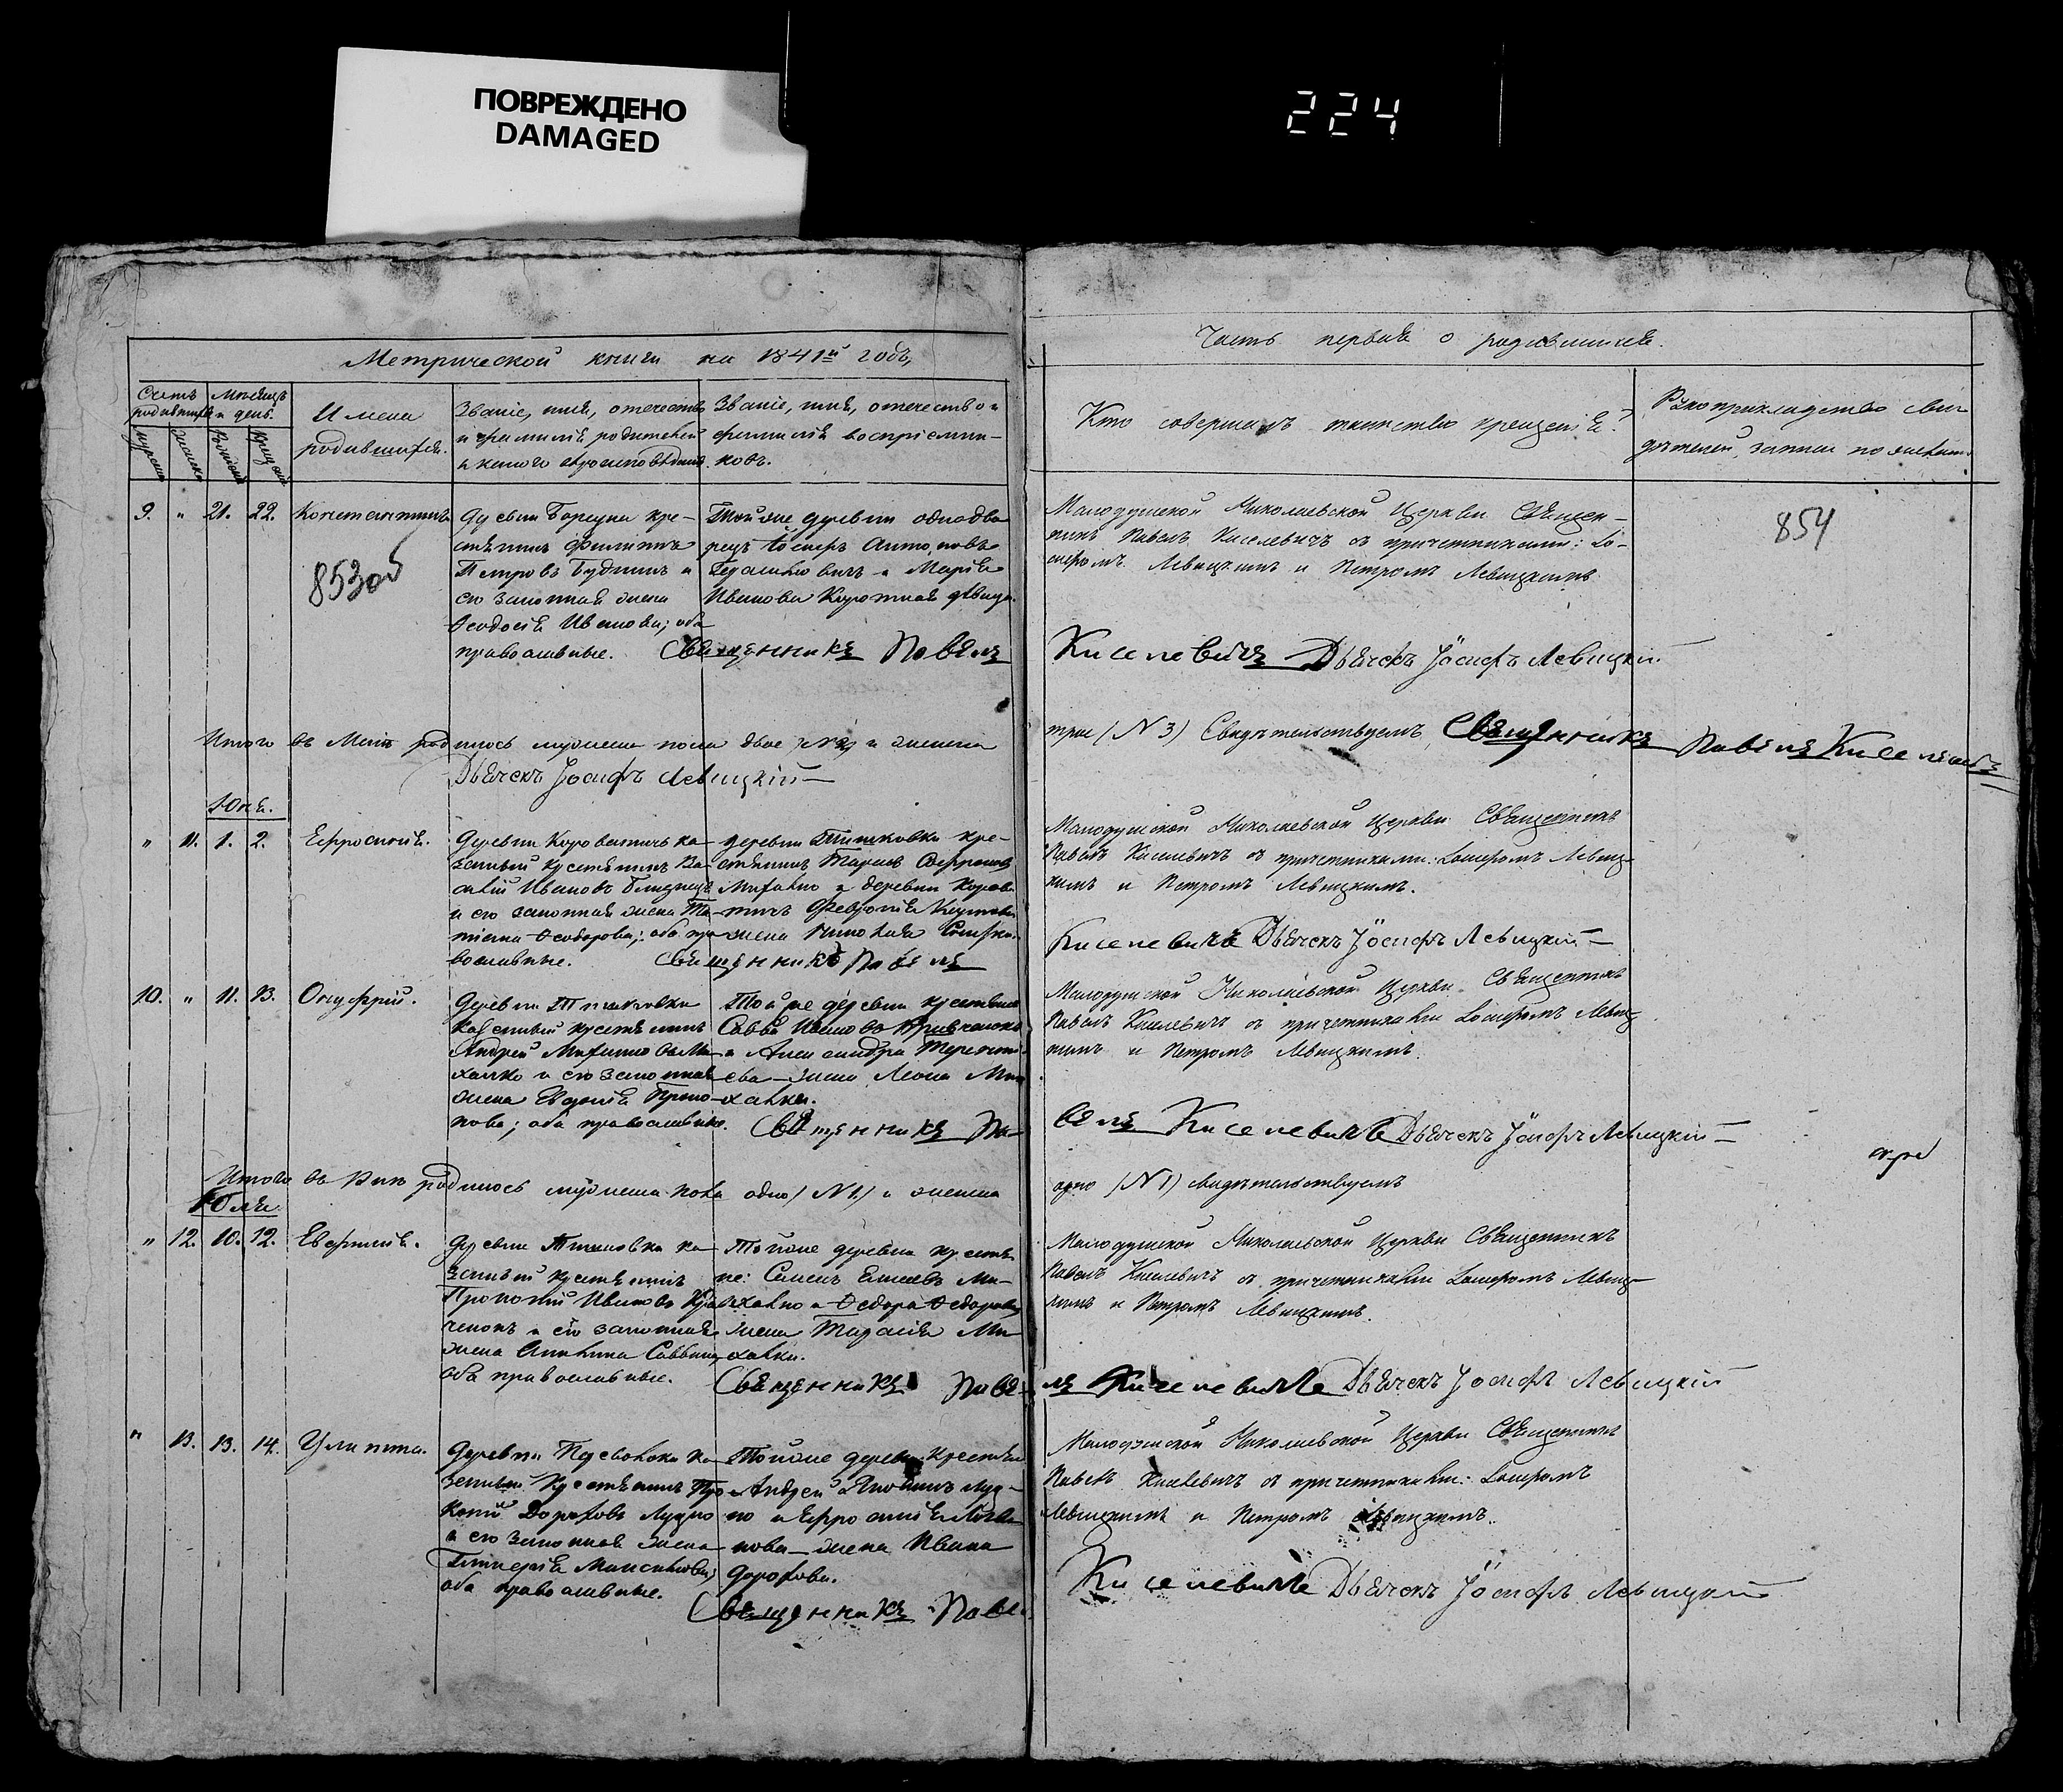 ПОВРЕЖДЕНО
DAMAGED
224
Метрической книги на 1841й годъ,
Часть первая о родившихся.
Счетъ родившихся
Мѣсяцъ и день.
Имена
родившихся.
Званіе, имя, отечество
и фамилія родителей
и какого вѣроисповѣданія.
Званіе, имя, отечество и
фамилія воспріемни-
ковъ.
Кто совершалъ таинство крещенія?
Рукоприкладство сви-
дѣтелей записи по
9. " 21. 22. Константинъ
853об
крe-
стьянинъ Филиппъ
Петровъ и
его законная жена
Ѳеодосія Иванова; оба
православные.
Той же деревни однодво-
рецъ Іосифъ Антоновъ
и Марія
Иванова дѣвица.
Священникъ Павелъ
Малодушской Николаевской Церкви Священ-
никъ Павелъ Киселевичъ съ причетниками: Іо-
сифомъ Левицкимъ и Петромъ Левицкимъ.
Киселевичъ Дьячекъ Іосифъ Левицкій
854
Итого въ Маіѣ родилось мужеска пола двое (№2) и женска
трое (№3) Свидѣтельствуемъ, Священникъ Павелъ Киселевичъ
Дьячекъ Іосифъ Левицкій
Юня.
" 11. 1. 2. Ефросинія.
Деревни Короватичь ка-
зенный крестьянинъ Ва-
силій Ивановъ
и его законная жена Та-
тіана Ѳеодорова; оба пра-
вославные.
деревни Тишковки кре-
стьянинъ Тарасъ
Михалко и деревни Корова-
тичь Февронія
жена
Священникъ Павелъ
Малодушской Николаевской Церкви Священникъ
Павелъ Киселевичъ съ причетниками: Іосифомъ Левиц-
кимъ и Петромъ Левицкимъ.
Киселевичъ Дьячекъ Іосифъ Левицкій
10. " 11. 13. Онуфрій.
Деревни Тишковки
казенный крестьянинъ
Андрей Ми-
халко и его законная
жена Евдокія Проко-
пова; оба православные.
Той же деревни крестьяне
Савва Ивановъ Кравченокъ
и Александра Теренті-
ева жена Леона Ми-
халки.
Священникъ Па-
Малодушской Николаевской Церкви Священникъ
Павелъ Киселевичъ съ причетниками Іосифомъ Левиц-
кимъ и Петромъ Левицкимъ.
велъ Киселевичъ Дьячекъ Іосифъ Левицкій
Итого въ Юнѣ родилось мужеска пола одно (№1.) и женска
одно (№1) свидѣтельствуемъ
Юля.
" 12. 10. 12. Евфимія.
Деревни Тишковки ка-
зенный крестьянинъ
Прокопій Ивановъ Крав-
ченокъ и его законная
жена Акилина Саввина,
оба православные.
Той же деревни крестья-
не: Семенъ Ми-
халко и Ѳедора Ѳедорова
жена Тарасія Ми-
халки.
Священникъ Паве-
Малодушской Николаевской Церкви Священникъ
Павелъ Киселевичъ съ причетниками Іосифомъ Левиц-
кимъ и Петромъ Левицкимъ.
лъ Киселевичъ Дьячекъ Іосифъ Левицкій
" 13. 13. 14. Улита.
Деревни ка-
зенный крестьянинъ Про-
копій Дорофовъ
и его законная жена
Гликерія Максимова;
оба православные.
Той же деревни крестьяне
Андрей
и Ефросинія
жена Ивана
Дорофова.
Священникъ Паве
Малодушской Николаевской Церкви Священникъ
Павелъ Киселевичъ съ причетниками: Іосифомъ
Левицкимъ и Петромъ Левицкимъ.
Киселевичъ Дьячекъ Іосифъ Левицкій